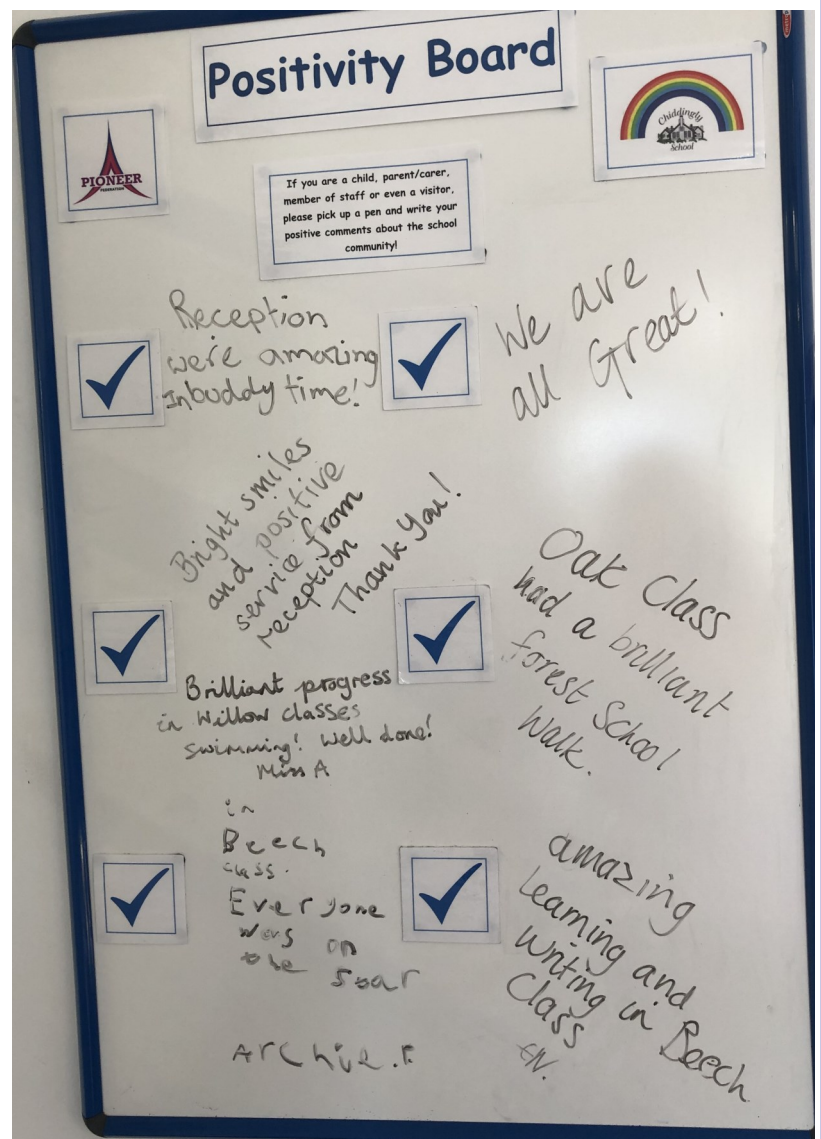 Positivity Board
PIONEER
FEDERATION
Chiddingly
School
If you are a child, parent/carer,
member of staff or even a visitor,
please pick up a pen and write your
positive comments about the school
community!
Reception
were amazing
In buddy time!
We are
all Great!
Bright smiles
and positive
service from
reception
Thank you!
Oak Class
had a brilliant
forest School
Walk.
Brilliant progress
in Willow classes
swimming! Well done!
Miss A
in
Beech
class.
Everyone
was on
the Star
Archie.F
amazing
Learning and
Writing in Beech
Class